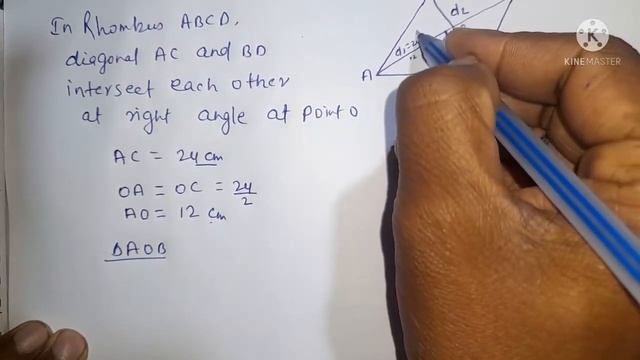 In Rhombus ABCD,
diagonal AC and BD
intersect each other
at right angle at point O
AC = 24 cm
OA = OC = 24/2
AO = 12 cm
ΔAOB
d₂
d₁=24
12
A
KINEMASTER